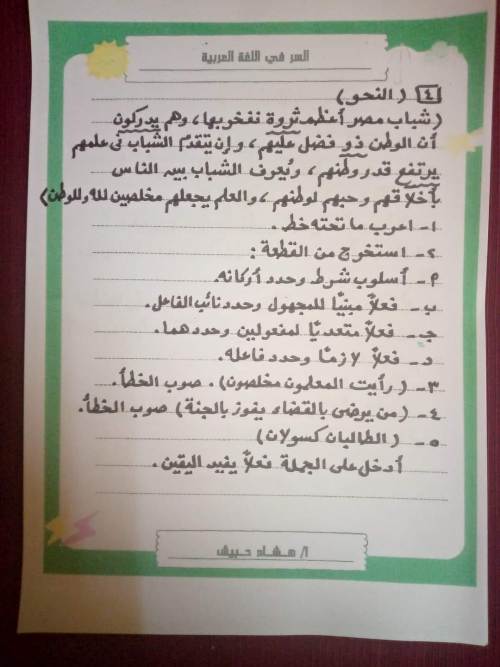 السر في اللغة العربية
٤ (النحو)
(شباب مصر أعظم ثروة نفخر بها، وهم يدركون
أن الوطن ذو فضل عليهم، وإن يتقدم الشباب في علمهم
يرتفع قدر وطنهم، ويُعرف الشباب بين الناس
بأخلاقهم وحبهم لوطنهم، والعلم يجعلهم مخلصين لله وللوطن)
١- اعرب ما تحته خط.
٢- استخرج من القطعة:
٩- أسلوب شرط وحدد أركانه.
ب- فعلاً مبنيًا للمجهول وحدد نائب الفاعل.
جـ- فعلاً متعديًا لمفعولين وحددهما.
د- فعلاً لازمًا وحدد فاعله.
٣- (رأيت المعلمون مخلصون). صوب الخطأ.
٤- (من يرضى بالقضاء يفوز بالجنة) صوب الخطأ.
٥- (الطالبان كسولان)
أدخل على الجملة فعلاً يفيد اليقين.
أ/ هشام حبيش